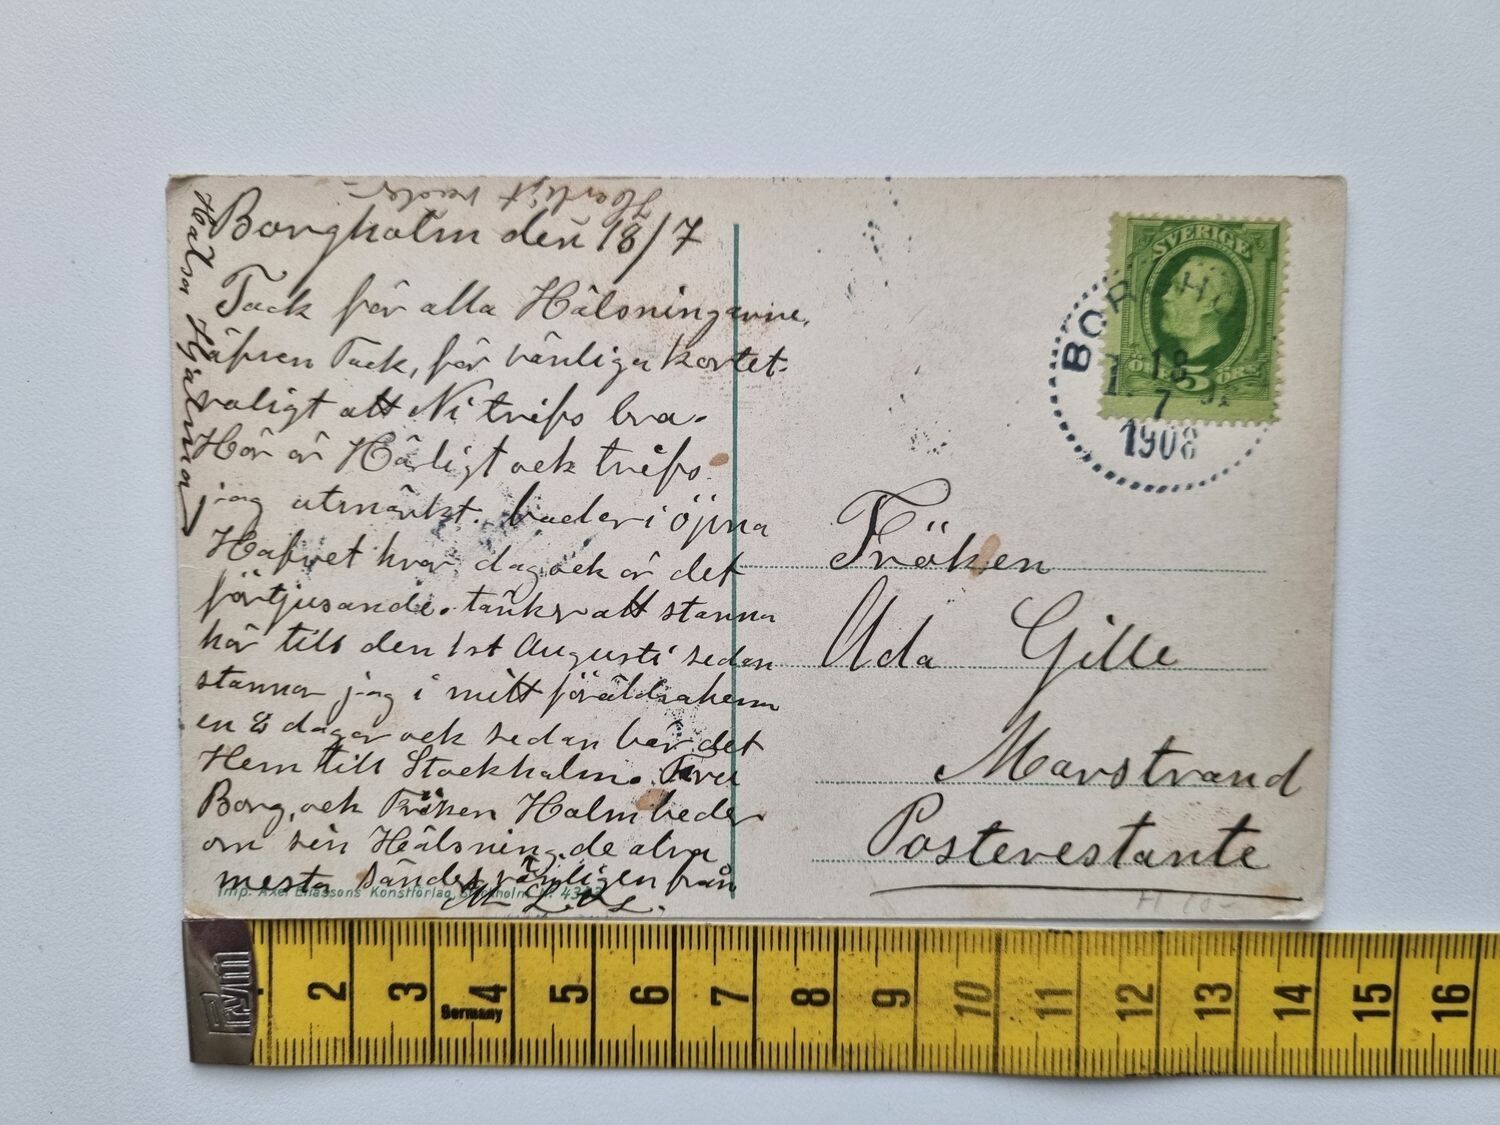 Härligt väder
Borgholm den 18/7
Tack för alla Hälsningarne,
äfven Tack, för vänliga kortet.
roligt att Ni trifs bra.
Här är Härligt ock trifs
jag utmärkt. bader i öppna
Hafvet hvar dag ock är det
förtjusande. tänker att stanna
här till den 1st Augusti sedan
stannar jag i mitt föräldrahem
en 8 dagar ock sedan bär det
Hem till Stockholm. Fru
Borg, ock Fröken Holm beder
om sin Hälsning. de alra
mesta sändes vänligen från
Hälsa Hjalmar
SVERIGE
ÖRE 5 ÖRE
BORGHOLM
18
7
1908
Fröken
Ada Gille
Marstrand
Posterestante
Imp. Axel Eliassons Konstförlag, Stockholm. N:
Prym
Germany
2 3 4 5 6 7 8 9 10 11 12 13 14 15 16